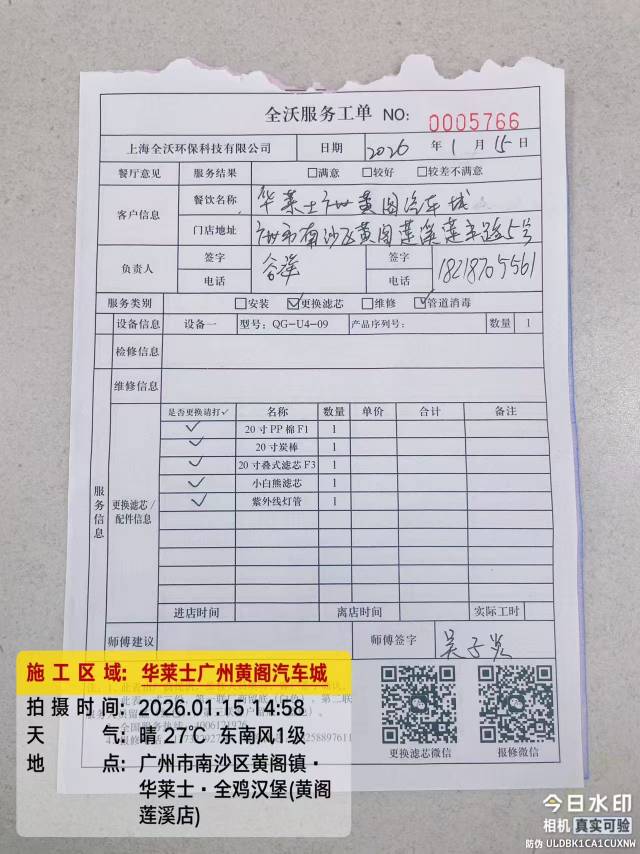 全沃服务工单 NO: 0005766
上海全沃环保科技有限公司 日期 2026 年 1 月 15 日
餐厅意见 服务结果 □满意 □较好 □较差不满意
客户信息 餐饮名称 华莱士广州黄阁汽车城
门店地址 广州市南沙区黄阁莲溪莲丰路5号
负责人 签字 签字
电话 电话 18218705561
服务类别 □安装 ☑更换滤芯 □维修 ☑管道消毒
设备信息 设备一 型号: QG-U4-09 产品序列号: 数量 1
检修信息
维修信息
服务信息
更换滤芯/配件信息
是否更换请打✓ 名称 数量 单价 合计 备注
✓ 20寸PP棉F1 1
✓ 20寸炭棒 1
✓ 20寸叠式滤芯F3 1
✓ 小白熊滤芯 1
✓ 紫外线灯管 1
进店时间 离店时间 实际工时
师傅建议 师傅签字
更换滤芯微信 报修微信
施工区域: 华莱士广州黄阁汽车城
拍摄时间: 2026.01.15 14:58
天气: 晴 27℃ 东南风1级
地点: 广州市南沙区黄阁镇·
华莱士·全鸡汉堡(黄阁
莲溪店)
今日水印
相机 真实可验
防伪 ULDBK1CA1CUXNW